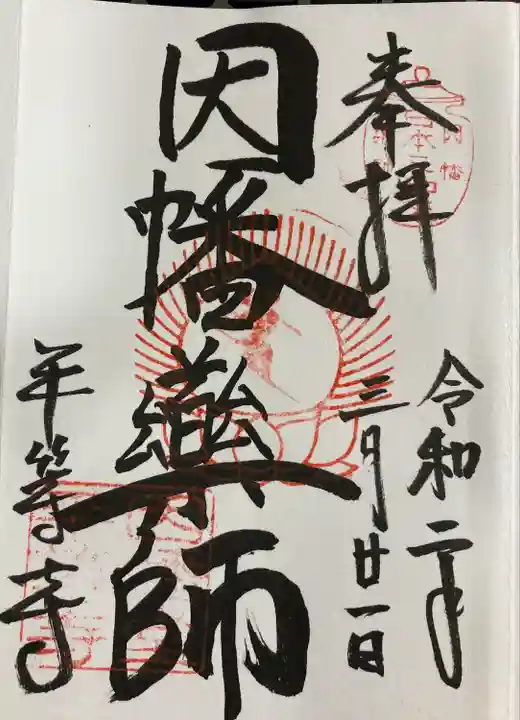 奉拝
令和二年
三月廿一日
因幡薬師
平等寺